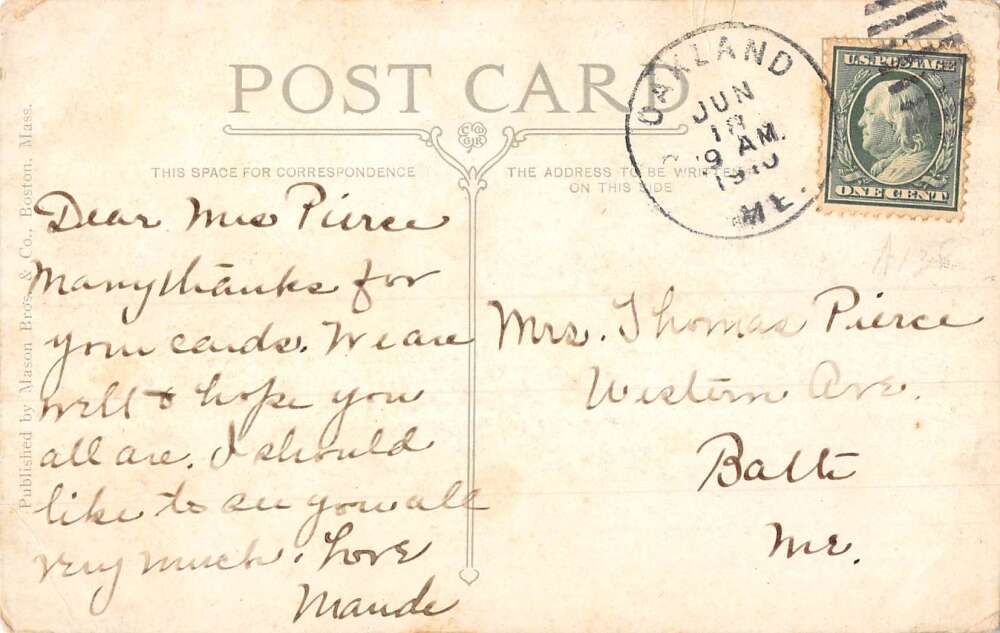 POST CARD
THIS SPACE FOR CORRESPONDENCE
THE ADDRESS TO BE WRITTEN
ON THIS SIDE
Published by Mason Bros. & Co., Boston, Mass.
OAKLAND
JUN
18
9 AM.
1910
ME.
U.S. POSTAGE
ONE CENT
Dear Mrs Pierce
Many thanks for
your cards. We are
well & hope you
all are. I should
like to see you all
very much. Love
Maude
Mrs. Thomas Pierce
Western Ave.
Me.